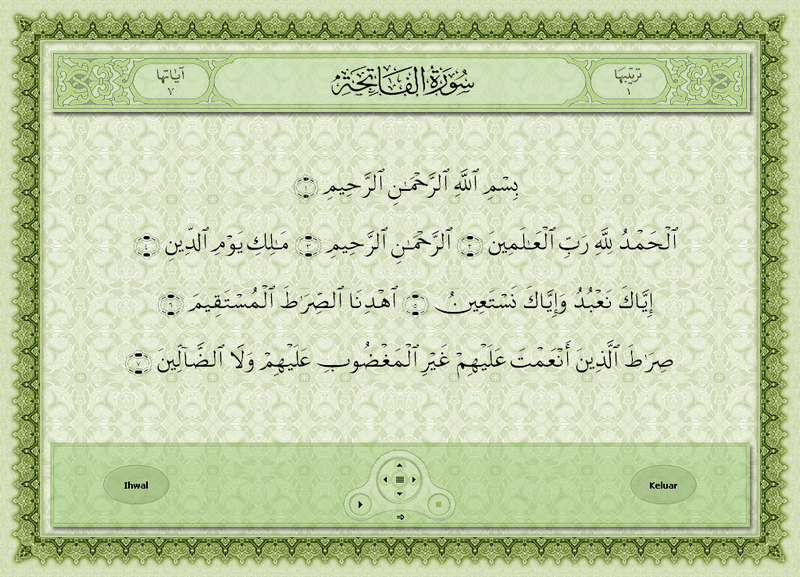 ترتيبها
١
سُورَةُ الفَاتِحَةِ
آياتها
٧
بِسْمِ ٱللَّهِ ٱلرَّحْمَـٰنِ ٱلرَّحِيمِ ١
ٱلْحَمْدُ لِلَّهِ رَبِّ ٱلْعَـٰلَمِينَ ٢ ٱلرَّحْمَـٰنِ ٱلرَّحِيمِ ٣ مَـٰلِكِ يَوْمِ ٱلدِّينِ ٤
إِيَّاكَ نَعْبُدُ وَإِيَّاكَ نَسْتَعِينُ ٥ ٱهْدِنَا ٱلصِّرَٰطَ ٱلْمُسْتَقِيمَ ٦
صِرَٰطَ ٱلَّذِينَ أَنْعَمْتَ عَلَيْهِمْ غَيْرِ ٱلْمَغْضُوبِ عَلَيْهِمْ وَلَا ٱلضَّآلِّينَ ٧
Ihwal
Keluar